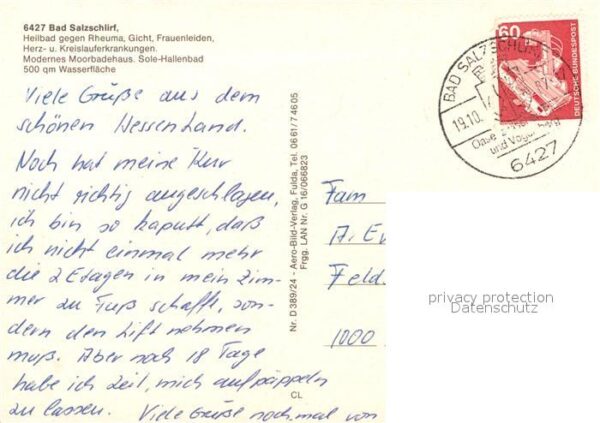 6427 Bad Salzschlirf,
Heilbad gegen Rheuma, Gicht, Frauenleiden,
Herz- u. Kreislauferkrankungen.
Modernes Moorbadehaus. Sole-Hallenbad
500 qm Wasserfläche
Viele Grüße aus dem
schönen Hessenland.
Noch hat meine Kur
nicht richtig angeschlagen,
ich bin so kaputt, daß
ich nicht einmal mehr
die 2 Etagen in mein Zim-
mer zu Fuß schaffe, son-
dern den Lift nehmen
muß. Aber noch 18 Tage
habe ich Zeit, mich aufpäppeln
zu lassen. Viele Grüße noch mal von
Nr. D 389/24 - Aero-Bild-Verlag, Fulda, Tel. 06 61/7 46 05
Frgg. LAN Nr. G 16/066823
CL
60
DEUTSCHE BUNDESPOST
BAD SALZSCHLIRF
19.10.
und
6427
Fam
A. Ev
Feld
1000
privacy protection
Datenschutz